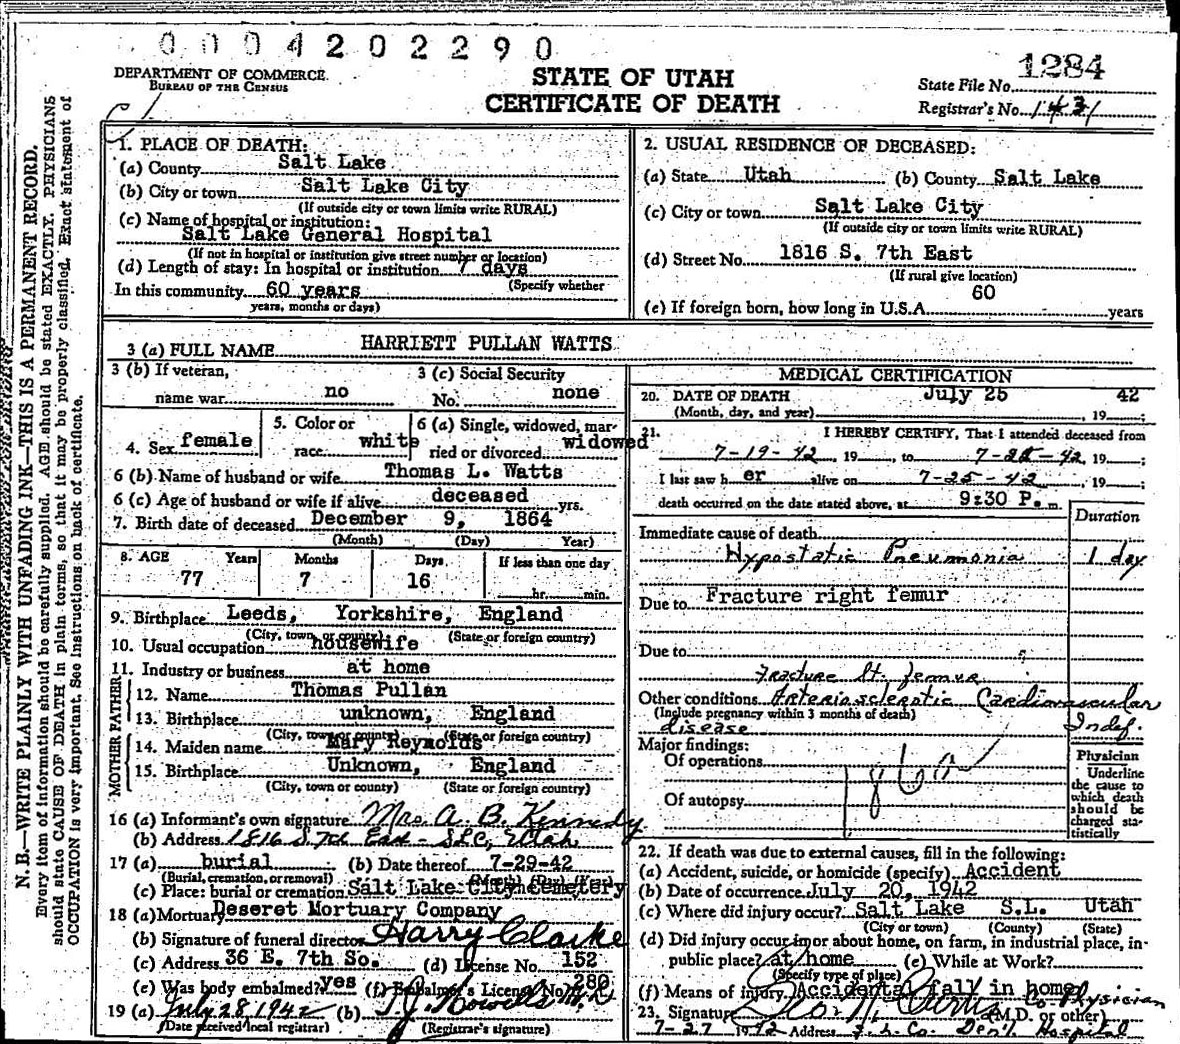 0004202290
DEPARTMENT OF COMMERCE
BUREAU OF THE CENSUS
STATE OF UTAH
CERTIFICATE OF DEATH
State File No. 1284
Registrar's No. 1431
N. B.—WRITE PLAINLY WITH UNFADING INK—THIS IS A PERMANENT RECORD.
Every item of information should be carefully supplied. AGE should be stated EXACTLY. PHYSICIANS
should state CAUSE OF DEATH in plain terms, so that it may be properly classified. Exact statement of
OCCUPATION is very important. See instructions on back of certificate.
1. PLACE OF DEATH:
(a) County Salt Lake
(b) City or town Salt Lake City
(If outside city or town limits write RURAL)
(c) Name of hospital or institution:
Salt Lake General Hospital
(If not in hospital or institution give street number or location)
(d) Length of stay: In hospital or institution 7 days
(Specify whether
In this community 60 years
years, months or days)
2. USUAL RESIDENCE OF DECEASED:
(a) State Utah (b) County Salt Lake
(c) City or town Salt Lake City
(If outside city or town limits write RURAL)
(d) Street No. 1816 S. 7th East
(If rural give location)
(e) If foreign born, how long in U.S.A. 60 years
3 (a) FULL NAME HARRIETT PULLAN WATTS
3 (b) If veteran,
name war no
3 (c) Social Security
No. none
4. Sex female
5. Color or
race white
6 (a) Single, widowed, mar-
ried or divorced widowed
6 (b) Name of husband or wife Thomas L. Watts
6 (c) Age of husband or wife if alive deceased yrs.
7. Birth date of deceased December 9, 1864
(Month) (Day) Year)
8. AGE Years Months Days If less than one day
77 7 16 hr. min.
9. Birthplace Leeds, Yorkshire, England
(City, town or county) (State or foreign country)
10. Usual occupation housewife
11. Industry or business at home
FATHER
12. Name Thomas Pullan
13. Birthplace unknown, England
(City, town or county) (State or foreign country)
MOTHER
14. Maiden name Mary Reynolds
15. Birthplace Unknown, England
(City, town or county) (State or foreign country)
16 (a) Informant's own signature Mrs. A. B. Kennedy
(b) Address 1816 S. 7th East - SLC, Utah
17 (a) burial (b) Date thereof 7-29-42
(Burial, cremation, or removal) (Month) (Day) (Year)
(c) Place: burial or cremation Salt Lake City Cemetery
18 (a) Mortuary Deseret Mortuary Company
(b) Signature of funeral director Harry Clarke
(c) Address 36 E. 7th So. (d) License No. 152
(e) Was body embalmed? yes (f) Embalmer's License No. 280
19 (a) July 28 1942 (b)
(Date received local registrar) (Registrar's signature)
MEDICAL CERTIFICATION
20. DATE OF DEATH July 25 42
(Month, day, and year) , 19 ;
21. I HEREBY CERTIFY, That I attended deceased from
7-19-42, 19 , to 7-25-42, 19 ;
I last saw h er alive on 7-25-42, 19 ;
death occurred on the date stated above, at 9:30 P. m.
Duration
Immediate cause of death
Hypostatic Pneumonia 1 day
Due to Fracture right femur
Due to
Fracture rt. femur
Other conditions Arteriosclerotic Cardiovascular
(Include pregnancy within 3 months of death)
disease Indef.
Major findings:
Of operations
Of autopsy
Physician
Underline
the cause to
which death
should be
charged sta-
tistically
22. If death was due to external causes, fill in the following:
(a) Accident, suicide, or homicide (specify) Accident
(b) Date of occurrence July 20, 1942
(c) Where did injury occur? Salt Lake S.L. Utah
(City or town) (County) (State)
(d) Did injury occur in or about home, on farm, in industrial place, in
public place? at home (e) While at Work?
(Specify type of place)
(f) Means of injury Accidental fall in home
23. Signature Co. Physician
(M.D. or other)
7-27 1942 Address S. L. Co. Gen'l. Hospital